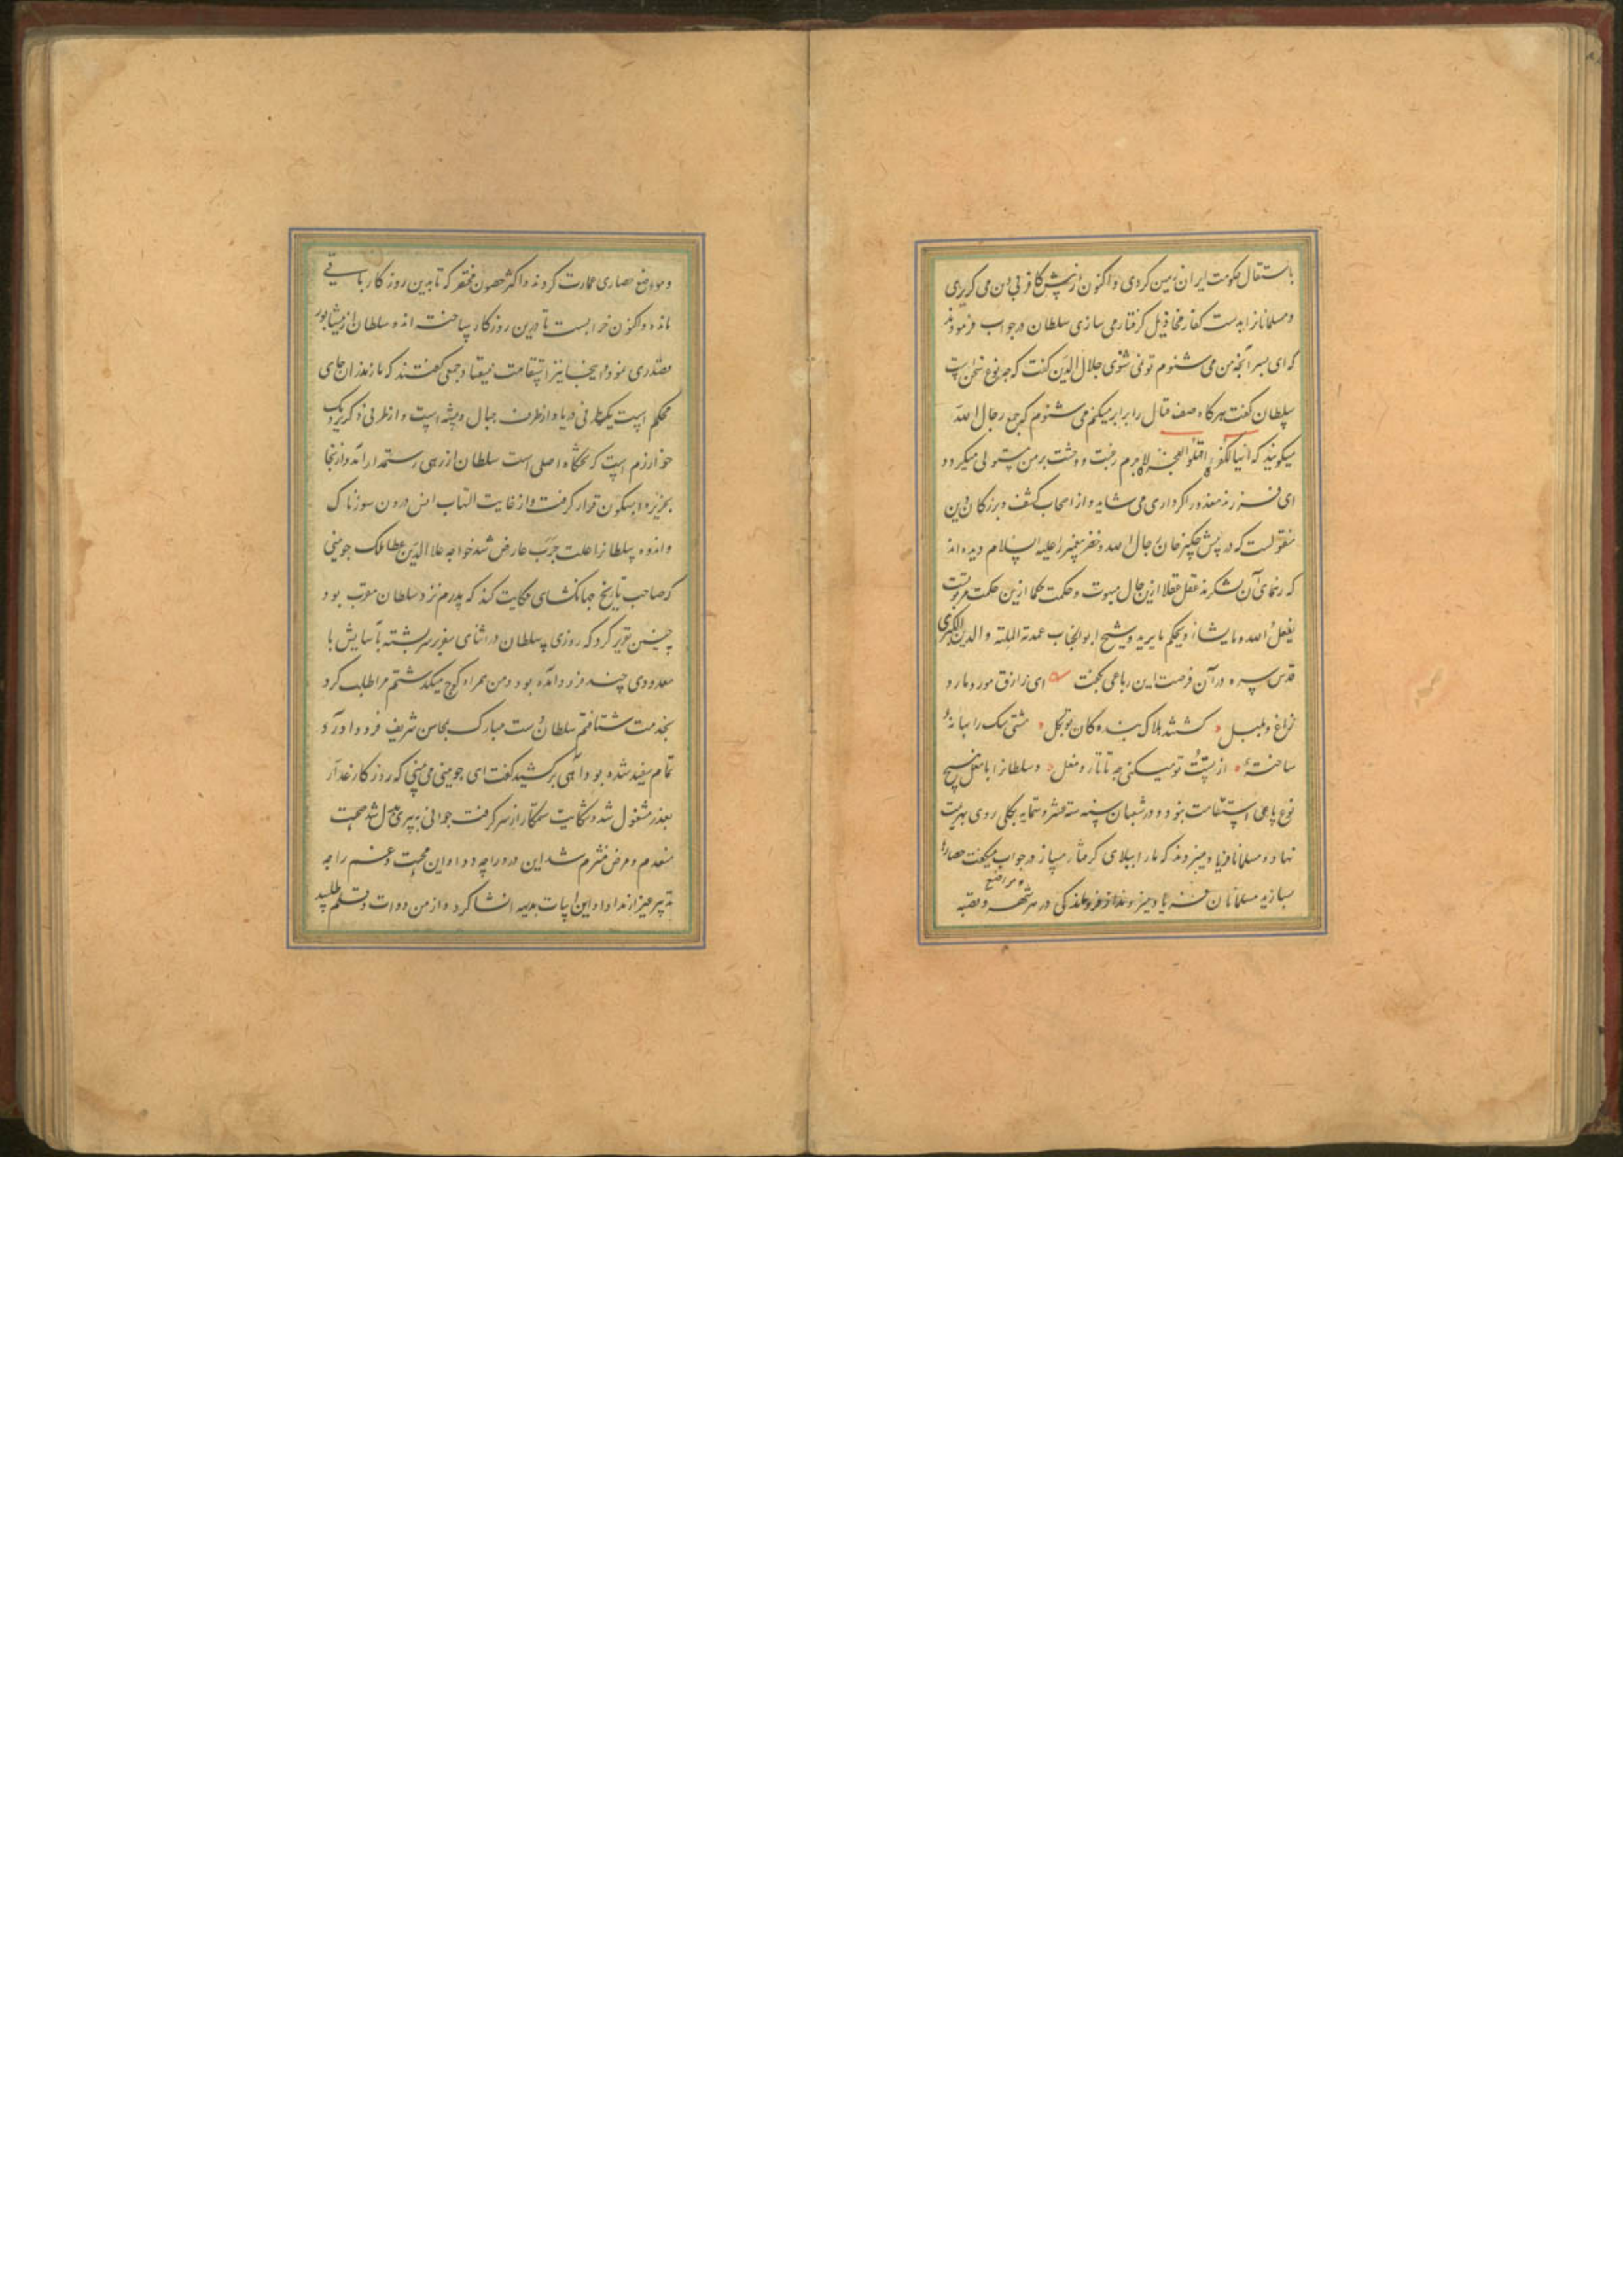 باستقلال حکومت ایران زمین کردی و اکنون از پیش کافر بی دین می کریزی
و مسلمانانرا بدست کفار مخاذیل کرفتار می سازی سلطان در جواب فرمودند
که ای پسر آنچه من می شنوم تو نمی شنوی جلال الدین کفت که چه نوع سخن است
سلطان کفت هرکاه صف قتال را برابر میکنم می شنوم که جمع رجال الله
میکویند که ایها الکفره اقتلوا الفجره لاجرم رعب و وحشت بر من مستولی میکردد
ای فرزند معذورم اکر داری می شاید و از اصحاب کشف و بزرکان دین
منقولست که در پیش چنکیز خان رجال الله و خضر پیغمبر را علیه السلام دیده اند
که رهنمای آن لشکر بوده عقل عقلا ازین حال مبهوت و حکمت حکما ازین حکمت
یفعل الله ما یشاء و یحکم ما یرید و شیخ ابو الجناب عمدة الملة و الدین الکبری
قدس سره در آن فرصت این رباعی بکفت ای رازق مور و مار و
زاغ و بلبل کشتند هلاک بنده کان تو بجل مشتی سک را بهانه
ساخته از پشت تو میکنی چه تاتار و مغل و سلطانرا با مغل هیچ
نوع پای استقامت نبود و در شعبان سنه سته عشر و ستمایه بکلی روی بهزیمت
نهاد و مسلمانان فریاد میزدند که ما را ببلای کرفتار مساز در جواب میکفت حصارها
بسازید مسلمانان فریاد میزدند از فروماندکی در هر شهر و قصبه
و مواضع
و مواضع حصاری عمارت کردند و اکثر حصون مختصر که تا بدین روزکار باقی
مانده و اکنون خرابست تا درین روزکار ساخته اند و سلطان از نیشابور
مقدری نمود و اینجا نیز استقامت نیفتاد جمعی کفتند که مازندران جای
محکم است یکطرفی دریا و از طرف جبال و بیشه است و از طرفی دیکر نزدیک
خوارزم است که تختکاه اصلی است سلطان از ری رستمدار آمد و از آنجا
بجزیره آبسکون قرار کرفت و از غایت التهاب آتش درون سوزناک
و اندوه سلطانرا علت جرب عارض شد خواجه علا الدین عطا ملک جوینی
که صاحب تاریخ جهانکشای حکایت کند که پدرم نزد سلطان مقرب بود
چنین تقریر کرد که روزی سلطان در اثنای سفر بر سر پشته بآسایش با
معدودی چند فرود آمده بود و من همراه کوچ میکذشتم مرا طلب کرد
بخدمت شتافتم سلطان دست مبارک بمحاسن شریف فرود آورد
تمام سفید شده بود آهی برکشید کفت ای جوینی می بینی که روزکار غدار
بغدر مشغول شد و شکایت ستمکار از سر کرفت جوانی به پیری بدل شد صحت
منعدم و مرض منضم شد این درد را چه دوا و این محنت و غم را چه
تدبیر و نیز ازند ادا و این ابیات بدیهه انشا کرد و از من دوات و قلم طلبید